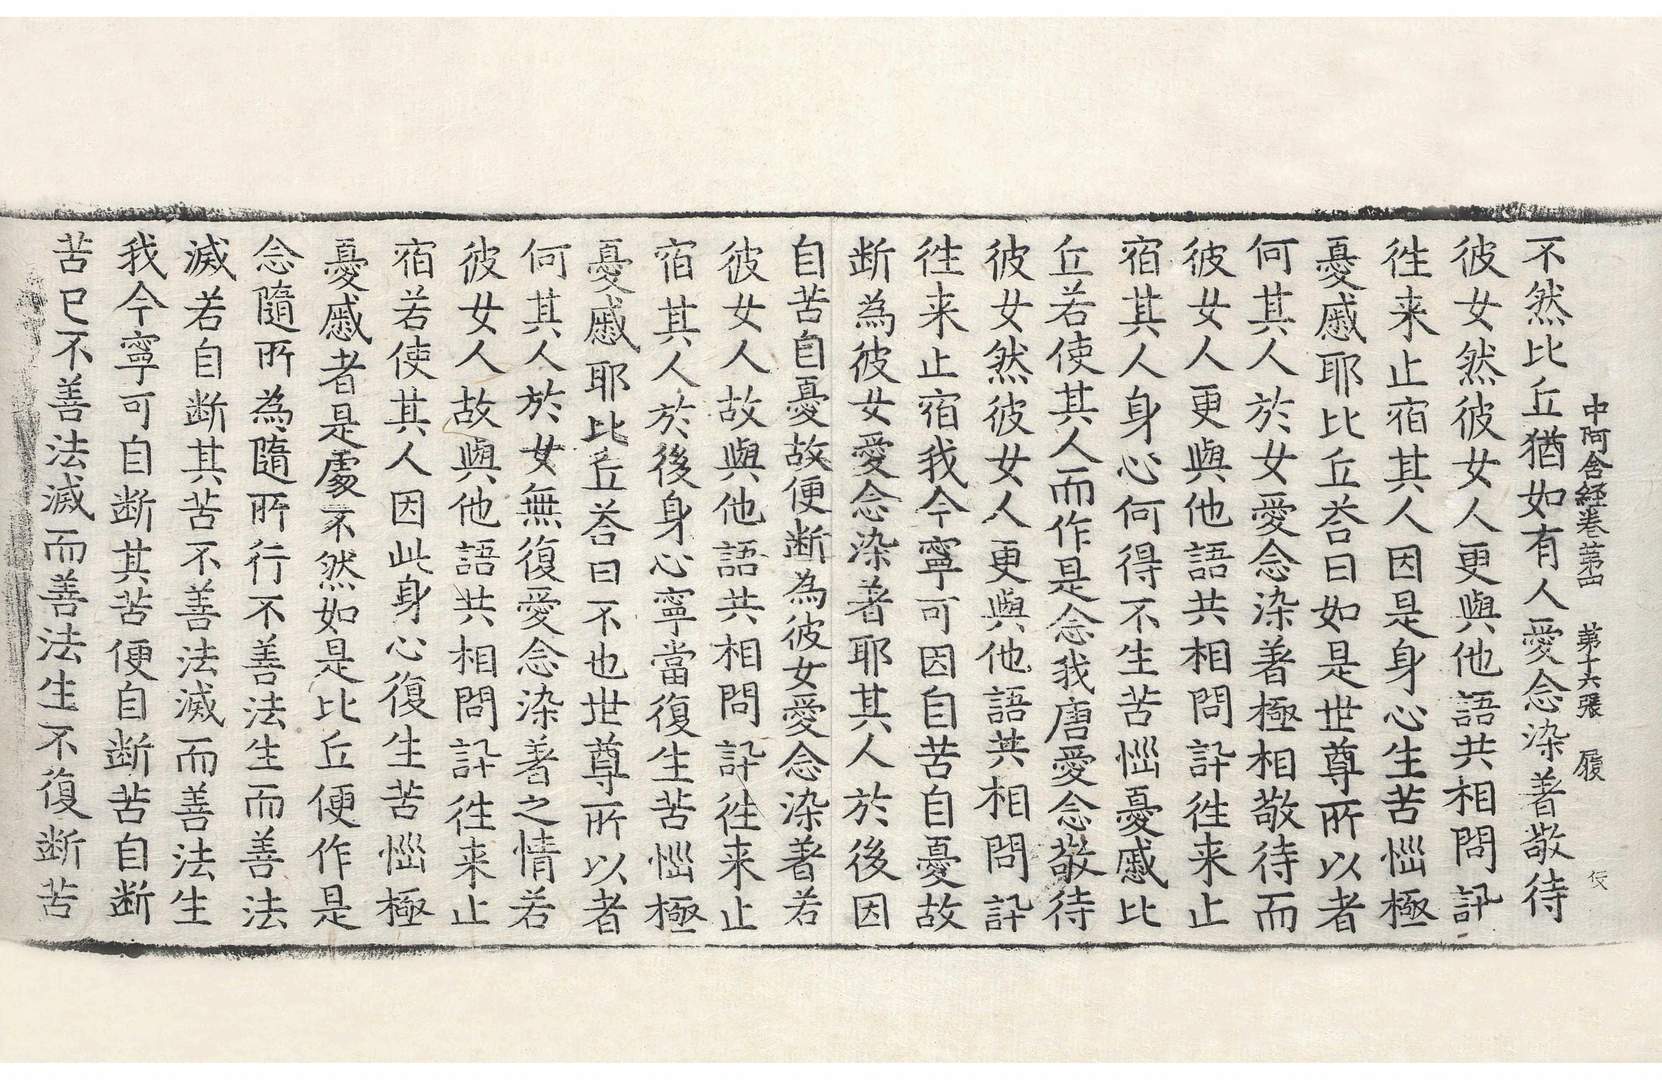 中阿含経卷第四　第十六張　履
不然比丘猶如有人愛念染著敬待
彼女然彼女人更與他語共相問訊
徃来止宿其人因是身心生苦惱極
憂慼耶比丘荅曰如是世尊所以者
何其人於女愛念染著極相敬待而
彼女人更與他語共相問訊徃来止
宿其人身心何得不生苦惱憂慼比
丘若使其人而作是念我唐愛念敬待
彼女然彼女人更與他語共相問訊
徃来止宿我今寧可因自苦自憂故
断為彼女愛念染著耶其人於後因
自苦自憂故便断為彼女愛念染著若
彼女人故與他語共相問訊徃来止
宿其人於後身心寧當復生苦惱極
憂慼耶比丘荅曰不也世尊所以者
何其人於女無復愛念染著之情若
彼女人故與他語共相問訊徃来止
宿若使其人因此身心復生苦惱極
憂慼者是處不然如是比丘便作是
念隨所為隨所行不善法生而善法
滅若自断其苦不善法滅而善法生
我今寧可自断其苦便自断苦自断
苦已不善法滅而善法生不復断苦